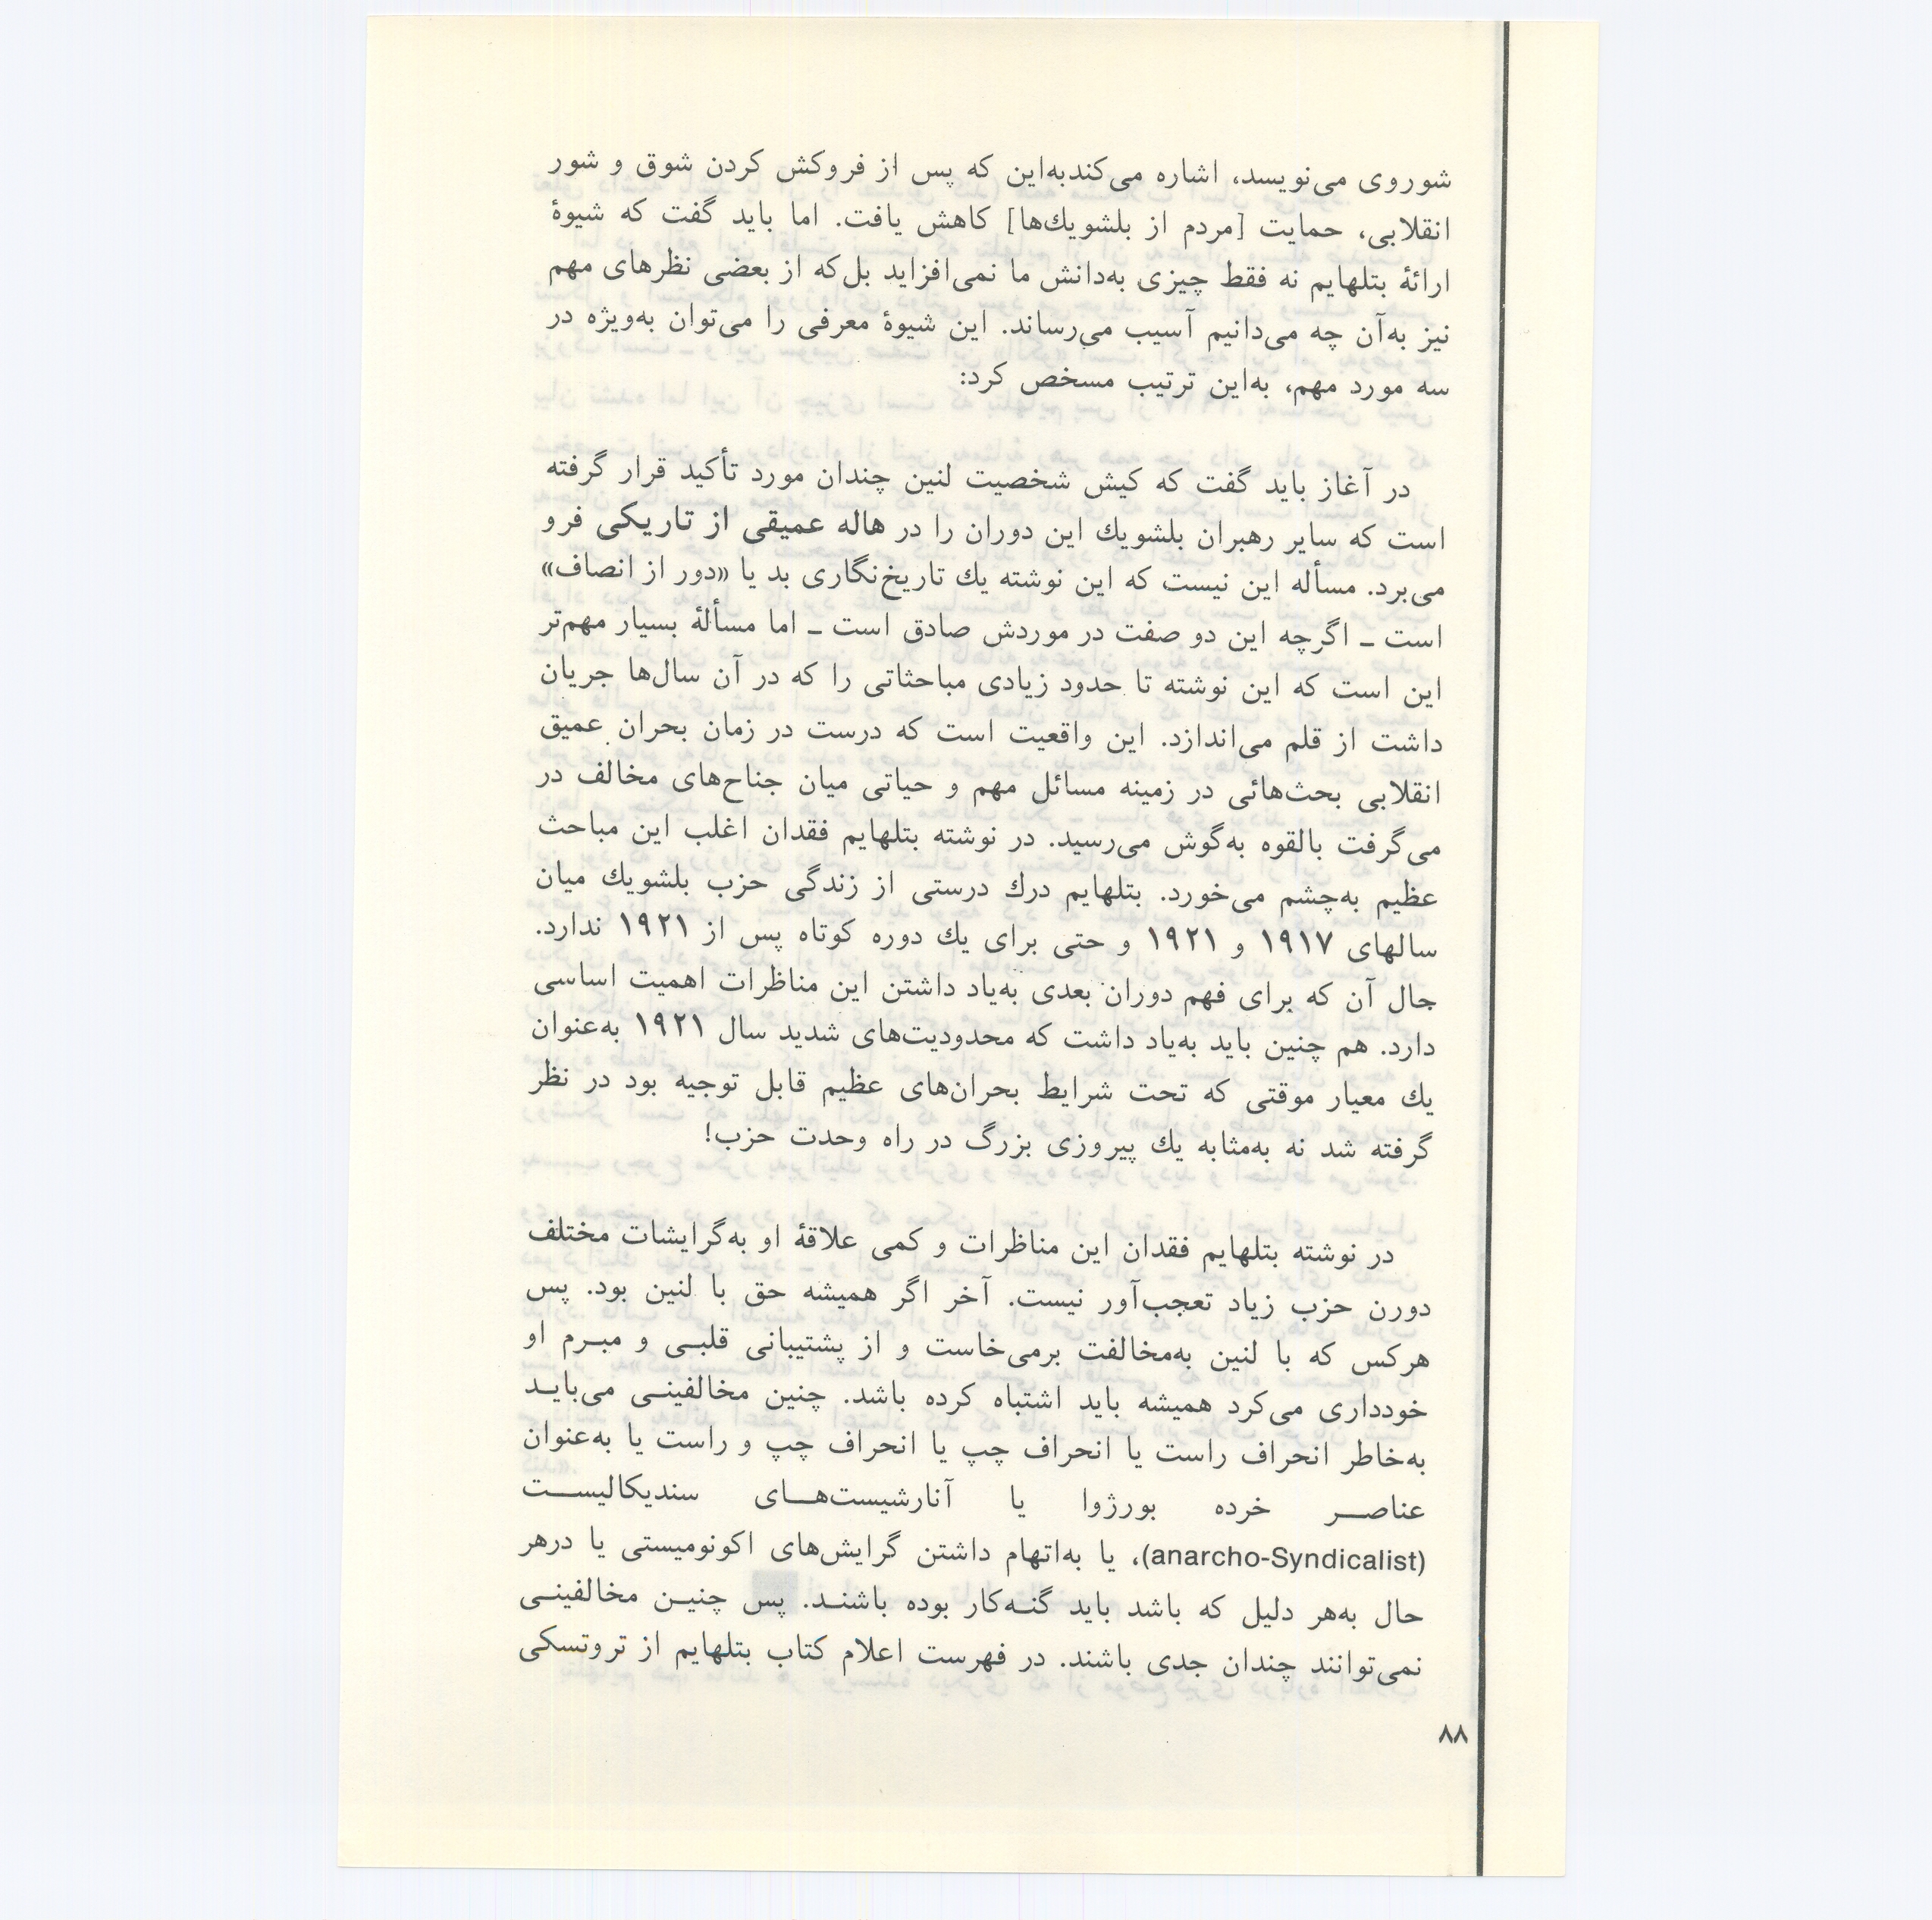 شوروی می‌نویسد، اشاره می‌کندبه‌این که پس از فروکش کردن شوق و شور
انقلابی، حمایت [مردم از بلشویك‌ها] کاهش یافت. اما باید گفت که شیوۀ
ارائۀ بتلهایم نه فقط چیزی به‌دانش ما نمی‌افزاید بل‌که از بعضی نظرهای مهم
نیز به‌آن چه می‌دانیم آسیب می‌رساند. این شیوۀ معرفی را می‌توان به‌ویژه در
سه مورد مهم، به‌این ترتیب مسخص کرد:
در آغاز باید گفت که کیش شخصیت لنین چندان مورد تأکید قرار گرفته
است که سایر رهبران بلشویك این دوران را در هاله عمیقی از تاریکی فرو
می‌برد. مسأله این نیست که این نوشته یك تاریخ‌نگاری بد یا «دور از انصاف»
است ــ اگرچه این دو صفت در موردش صادق است ــ اما مسألۀ بسیار مهم‌تر
این است که این نوشته تا حدود زیادی مباحثاتی را که در آن سال‌ها جریان
داشت از قلم می‌اندازد. این واقعیت است که درست در زمان بحران عمیق
انقلابی بحث‌هائی در زمینه مسائل مهم و حیاتی میان جناح‌های مخالف در
می‌گرفت بالقوه به‌گوش می‌رسید. در نوشته بتلهایم فقدان اغلب این مباحث
عظیم به‌چشم می‌خورد. بتلهایم درك درستی از زندگی حزب بلشویك میان
سالهای ۱۹۱۷ و ۱۹۲۱ و حتی برای یك دوره کوتاه پس از ۱۹۲۱ ندارد.
جال آن که برای فهم دوران بعدی به‌یاد داشتن این مناظرات اهمیت اساسی
دارد. هم چنین باید به‌یاد داشت که محدودیت‌های شدید سال ۱۹۲۱ به‌عنوان
یك معیار موقتی که تحت شرایط بحران‌های عظیم قابل توجیه بود در نظر
گرفته شد نه به‌مثابه یك پیروزی بزرگ در راه وحدت حزب!
در نوشته بتلهایم فقدان این مناظرات و کمی علاقۀ او به‌گرایشات مختلف
دورن حزب زیاد تعجب‌آور نیست. آخر اگر همیشه حق با لنین بود. پس
هرکس که با لنین به‌مخالفت برمی‌خاست و از پشتیبانی قلبـی و مبـرم او
خودداری می‌کرد همیشه باید اشتباه کرده باشد. چنین مخالفینـی می‌بایـد
به‌خاطر انحراف راست یا انحراف چپ یا انحراف چپ و راست یا به‌عنوان
عناصـر خرده بورژوا یا آنارشیست‌هـای سندیکالیسـت
(anarcho-Syndicalist)، یا به‌اتهام داشتن گرایش‌های اکونومیستی یا درهر
حال به‌هر دلیل که باشد باید گنـه‌کار بوده باشنـد. پس چنیـن مخالفینـی
نمی‌توانند چندان جدی باشند. در فهرست اعلام کتاب بتلهایم از تروتسکی
۸۸